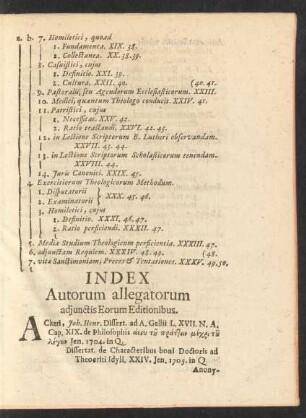 2. b. 7. Homiletici, quoad
1. Fundamenta. XIX. 38.
2. Collectanea. XX. 38. 39.
8. Casuistici, cujus
1. Definitio. XXI. 39.
2. Cultura. XXII. 40. (40. 41.
9. Pastoralis, seu Agendorum Ecclesiasticorum. XXIII.
10. Medici, quantum Theologo conducit. XXIV. 41.
11. Patristici, cujus
1. Necessitas. XXV. 42.
2. Ratio tractandi. XXVI. 42. 43.
12. in Lectione Scriptorum B. Lutheri observandam.
XXVII. 43. 44.
13. in Lectione Scriptorum Scholasticorum tenendam.
XXVIII. 44.
14. Juris Canonici. XXIX. 45.
4. Exercitiorum Theologicorum Methodum.
1. Disputatorii
2. Examinatorii } XXX. 45. 46.
3. Homiletici, cujus
1. Definitio. XXXI. 46. 47.
2. Ratio perficiendi. XXXII. 47.
5. Media Studium Theologicum perficientia. XXXIII. 47.
6. adjunctam Requiem. XXXIV. 48. 49. (48.
7. vitæ Sanctimoniam, Preces & Tentationes. XXXV. 49. 50.
INDEX
Autorum allegatorum
adjunctis Eorum Editionibus.
Ackeri, Joh. Henr. Dissert. ad A. Gellii L. XVII. N. A.
Cap. XIX. de Philosophis ἄνευ τῦ πράττειν μέχρι τῦ
λέγειν Jen. 1704. in Q.
Dissertat. de Characteribus boni Doctoris ad
Theocriti Idyll. XXIV. Jen. 1705. in Q.
Anony-